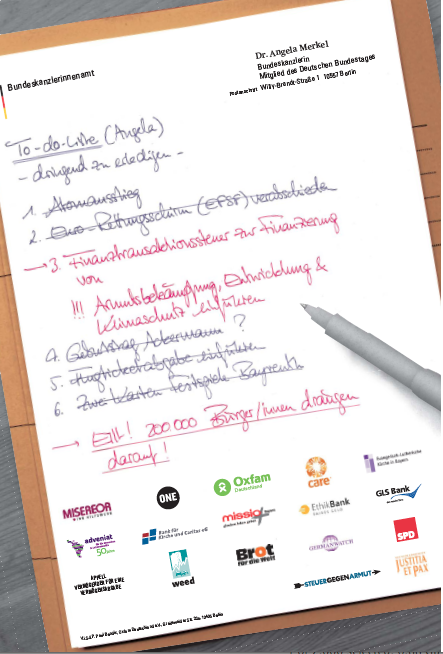 Bundeskanzlerinnenamt
Dr. Angela Merkel
Bundeskanzlerin
Mitglied des Deutschen Bundestages
Willy-Brandt-Straße 1 10557 Berlin
To-do-Liste (Angela)
- dringend zu erledigen -
1. Atomausstieg
2. Euro-Rettungsschirm (EFSF) verabschieden
→ 3. Finanztransaktionssteuer zur Finanzierung
von
!!! Armutsbekämpfung, Entwicklung &
Klimaschutz einführen
4. Geburtstag Ackermann ?
5. Flugticketabgabe einführen
6. Zwei Karten Festspiele Bayreuth
→ Eilt! 200 000 Bürger/innen drängen
darauf!
MISEREOR
IHR HILFSWERK
ONE
Oxfam
Deutschland
care
Evangelisch-Lutherische
Kirche in Bayern
adveniat
50 Jahre
Bank für
Kirche und Caritas eG
missio
glauben.leben.geben.
EthikBank
GLS Bank
APPELL
VERMÖGENDER FÜR EINE
VERMÖGENSABGABE
weed
Brot
für die Welt
GERMANWATCH
SPD
STEUERGEGENARMUT
JUSTITIA
ET PAX